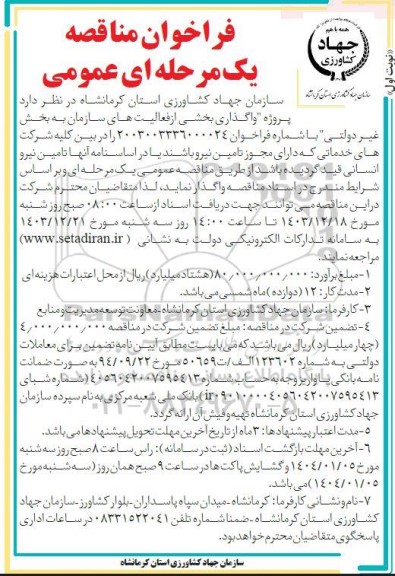 فراخوان مناقصه
یک مرحله ای عمومی
همه با هم
جهاد
کشاورزی
سازمان جهاد کشاورزی استان کرمانشاه
(نوبت اول)
سازمان جهاد کشاورزی استان کرمانشاه در نظر دارد
پروژه "واگذاری بخشی از فعالیت های سازمان به بخش
غیر دولتی" با شماره فراخوان ۲۰۰۳۰۰۳۳۳۶۰۰۰۰۲۴ را در بین کلیه شرکت
های خدماتی که دارای مجوز تامین نیرو باشند یا در اساسنامه آنها تامین نیرو
انسانی قید گردیده باشد از طریق مناقصه عمومی یک مرحله ای و بر اساس
شرایط مندرج در اسناد مناقصه واگذار نماید، لذا متقاضیان محترم شرکت
در این مناقصه می توانند جهت دریافت اسناد از ساعت ۰۸:۰۰ صبح روز شنبه
مورخ ۱۴۰۳/۱۲/۱۸ تا ساعت ۱۴:۰۰ روز سه شنبه مورخ ۱۴۰۳/۱۲/۲۱
به سامانه تدارکات الکترونیکی دولت به نشانی (www.setadiran.ir)
مراجعه نمایند.
۱-مبلغ برآورد: ۸۰,۰۰۰,۰۰۰,۰۰۰ (هشتاد میلیارد) ریال از محل اعتبارات هزینه ای
۲-مدت کار: ۱۲ (دوازده) ماه شمسی می باشد.
۳-کارفرما: سازمان جهاد کشاورزی استان کرمانشاه-معاونت توسعه مدیریت و منابع
۴-تضمین شرکت در مناقصه: مبلغ تضمین شرکت در مناقصه ۴,۰۰۰,۰۰۰,۰۰۰
(چهار میلیارد) ریال می باشد که می بایست مطابق آیین نامه تضمین برای معاملات
دولتی به شماره ۱۲۳۴۰۲/ت۵۰۶۵۹ه مورخ ۹۴/۰۹/۲۲ به صورت ضمانت
نامه بانکی یا واریز وجه به حساب شماره ۴۰۵۶۰۴۲۰۰۷۵۹۵۴۱۳ (شماره شبای
ir۰۹۰۱۰۰۰۰۴۰۵۶۰۴۲۰۰۷۵۹۵۴۱۳) بانک ملی شعبه مرکزی به نام سپرده سازمان
جهاد کشاورزی استان کرمانشاه تهیه و فیش آن ارائه گردد.
۵-مدت اعتبار پیشنهادها: ۳ ماه از تاریخ آخرین مهلت تحویل پیشنهادها می باشد.
۶-آخرین مهلت بازگشت اسناد (ثبت در سامانه): راس ساعت ۸ صبح روز سه شنبه
مورخ ۱۴۰۴/۰۱/۰۵ و گشایش پاکت ها در ساعت ۹ صبح همان روز (سه شنبه مورخ
۱۴۰۴/۰۱/۰۵) می باشد.
۷-نام و نشانی کارفرما: کرمانشاه-میدان سپاه پاسداران-بلوار کشاورز-سازمان جهاد
کشاورزی استان کرمانشاه-ضمنا شماره تلفن ۰۸۳۳۱۵۲۲۰۴۱ در ساعات اداری
پاسخگوی متقاضیان محترم خواهد بود.
سازمان جهاد کشاورزی استان کرمانشاه